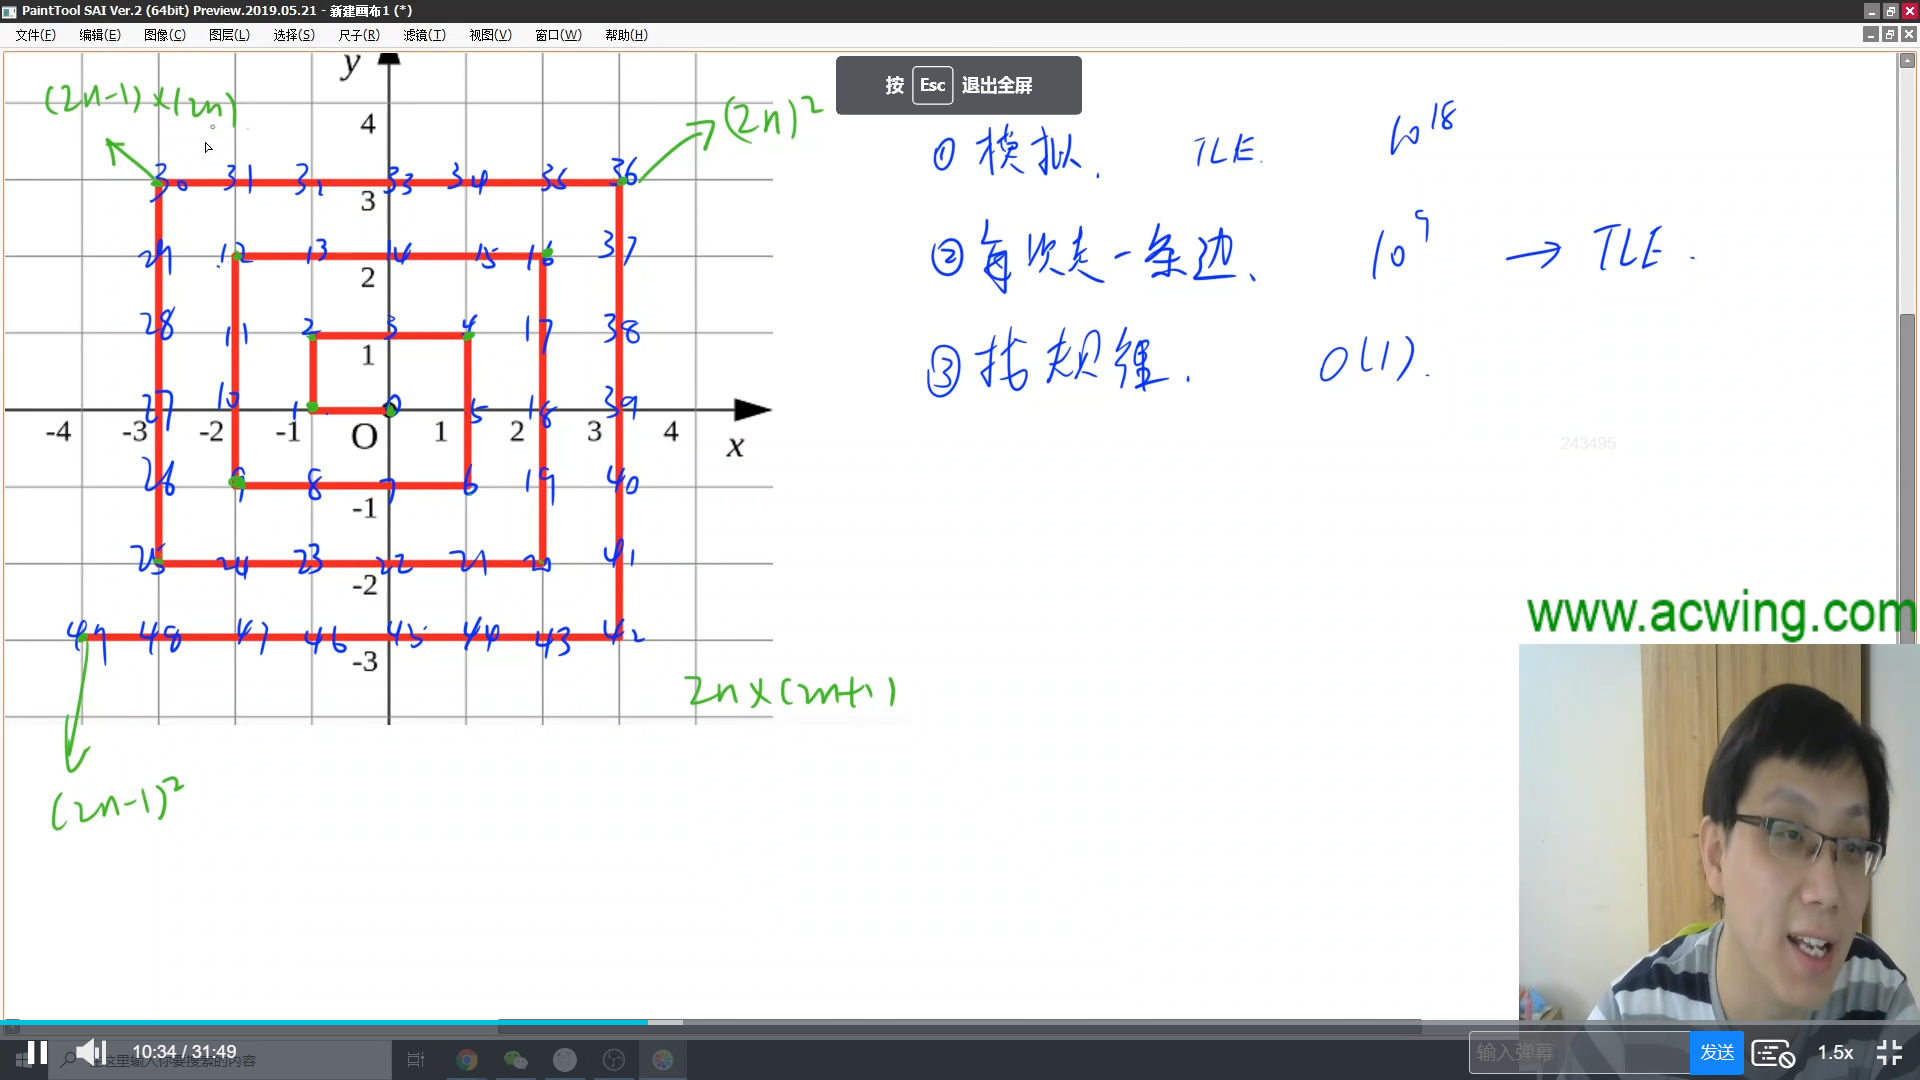 PaintTool SAI Ver.2 (64bit) Preview.2019.05.21 - 新建画布1 (*)
文件(F) 编辑(E) 图像(C) 图层(L) 选择(S) 尺子(R) 滤镜(T) 视图(V) 窗口(W) 帮助(H)
按 Esc 退出全屏
y
(2n-1)×(2n)
(2n)²
4
30 31 32 33 34 35 36
3
29 12 13 14 15 16 37
2
28 11 2 3 4 17 38
1
27 10 1 0 5 18 39
-4 -3 -2 -1 O 1 2 3 4 x
26 9 8 7 6 19 40
-1
25 24 23 22 21 20 41
-2
49 48 47 46 45 44 43 42
-3
2n×(2n+1)
(2n-1)²
① 模拟. TLE. 10¹⁸
② 每次走一条边. 10⁹ → TLE.
③ 找规律. O(1).
243495
www.acwing.com
10:34 / 31:49
在这里输入你要搜索的内容
输入弹幕
发送
1.5x